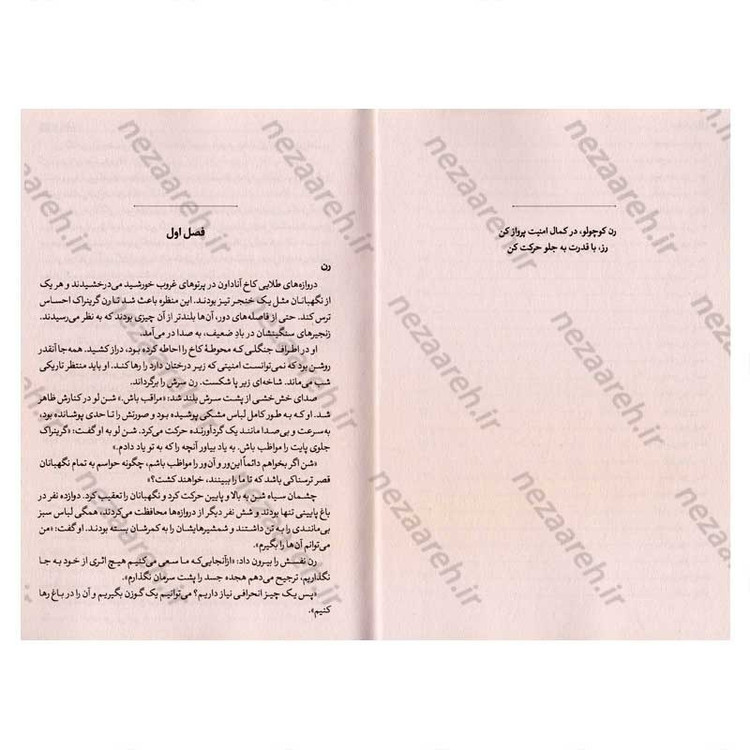 رن کوچولو، در کمال امنیت پرواز کن
رز، با قدرت به جلو حرکت کن
فصل اول
رن
دروازه‌های طلایی کاخ آناداون در پرتوهای غروب خورشید می‌درخشیدند و هر یک
از نگهبانان مثل یک خنجر تیز بودند. این منظره باعث شد تا رن گرینراک احساس
ترس کند. حتی از فاصله‌های دور، آن‌ها بلندتر از آن چیزی بودند که به نظر می‌رسیدند.
زنجیرهای سنگینشان در بادِ ضعیف، به صدا در می‌آمد.
او در اطراف جنگلی که محوطهٔ کاخ را احاطه کرده بود، دراز کشید. همه‌جا آنقدر
روشن بود که نمی‌توانست امنیتی که زیر درختان دارد را رها کند. او باید منتظر تاریکی
شب می‌ماند. شاخه‌ای زیر پا شکست. رن سرش را برگرداند.
صدای خش‌خشی از پشت سرش بلند شد: «مراقب باش.» شن لو در کنارش ظاهر
شد. او که به طور کامل لباس مشکی پوشیده بود و صورتش را تا حدی پوشانده بود،
به‌سرعت و بی‌صدا مانند یک گردآورنده حرکت می‌کرد. شن لو به او گفت: «گرینراک
جلوی پایت را مواظب باش. به یاد بیاور آنچه را که به تو یاد دادم.»
«شن اگر بخواهم دائماً این‌ور و آن‌ور را مواظب باشم، چگونه حواسم به تمام نگهبانان
قصر ترسناکی باشد که تا ما را ببینند، خواهند کشت؟»
چشمان سیاه شن به بالا و پایین حرکت کرد و نگهبانان را تعقیب کرد. دوازده نفر در
باغ پایینی تنها بودند و شش نفر دیگر از دروازه‌ها محافظت می‌کردند، همگی لباس سبز
بی‌مانندی را به تن داشتند و شمشیرهایشان را به کمرشان بسته بودند. او گفت: «من
می‌توانم آن‌ها را بگیرم».
رن نفسش را بیرون داد: «ازآنجایی‌که ما سعی می‌کنیم هیچ اثری از خود به جا
نگذاریم، ترجیح می‌دهم هجده جسد را پشت سرمان نگذارم».
«پس یک چیز انحرافی نیاز داریم؟ می‌توانیم یک گوزن بگیریم و آن را در باغ رها
کنیم».
nezaareh.ir
nezaareh.ir
nezaareh.ir
nezaareh.ir
nezaareh.ir
nezaareh.ir
nezaareh.ir
nezaareh.ir